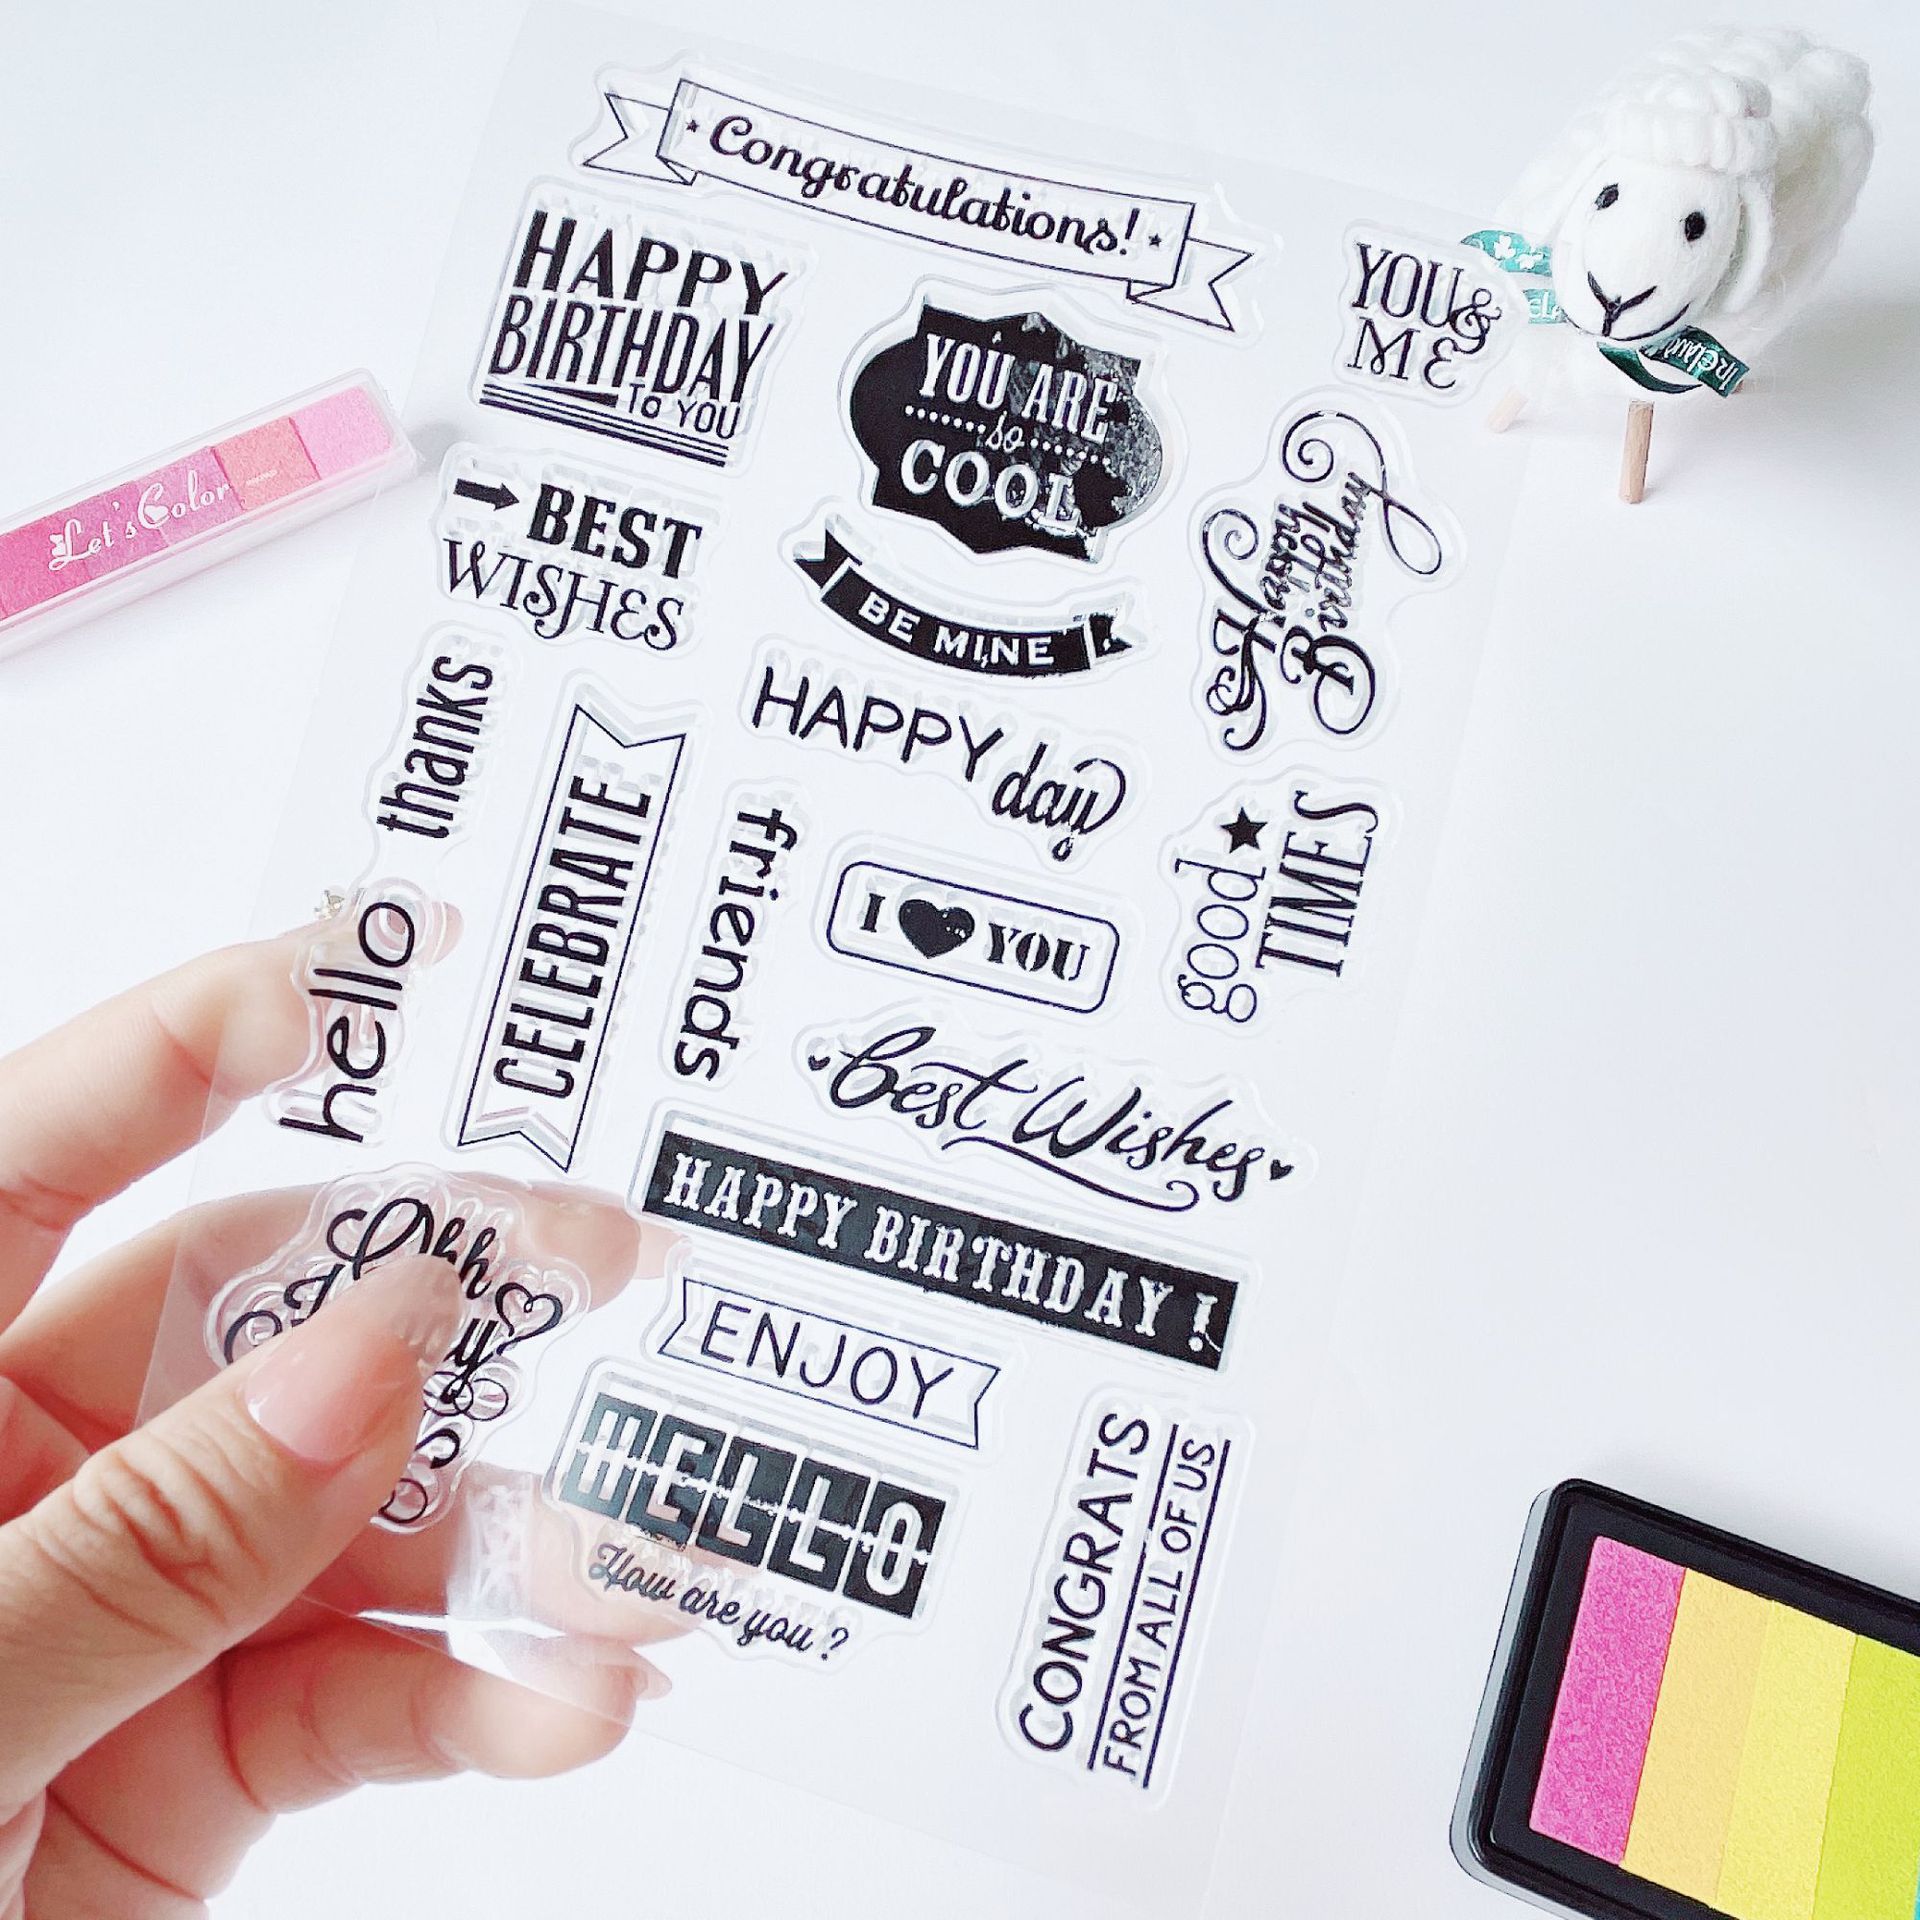 Congratulations!
HAPPY
BIRTHDAY
To YOU
YOU ARE
so
COOL
YOU &
ME
Let's Color
BEST
WISHES
BE MINE
Happy
Birthday
thanks
CELEBRATE
HAPPY day
friends
I ♥ YOU
good
TIMES
hello
Best Wishes
HAPPY BIRTHDAY !
Ohh
ENJOY
How are you ?
CONGRATS
FROM ALL OF US
Ireland